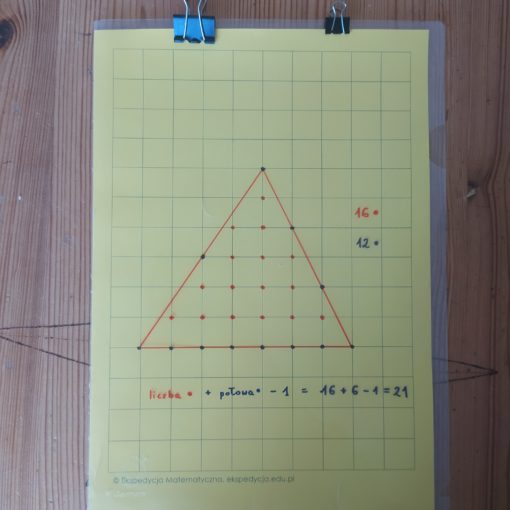 16 •
12 •
liczba • + połowa • - 1 = 16 + 6 - 1 = 21
© Ekspedycja Matematyczna, ekspedycja.edu.pl